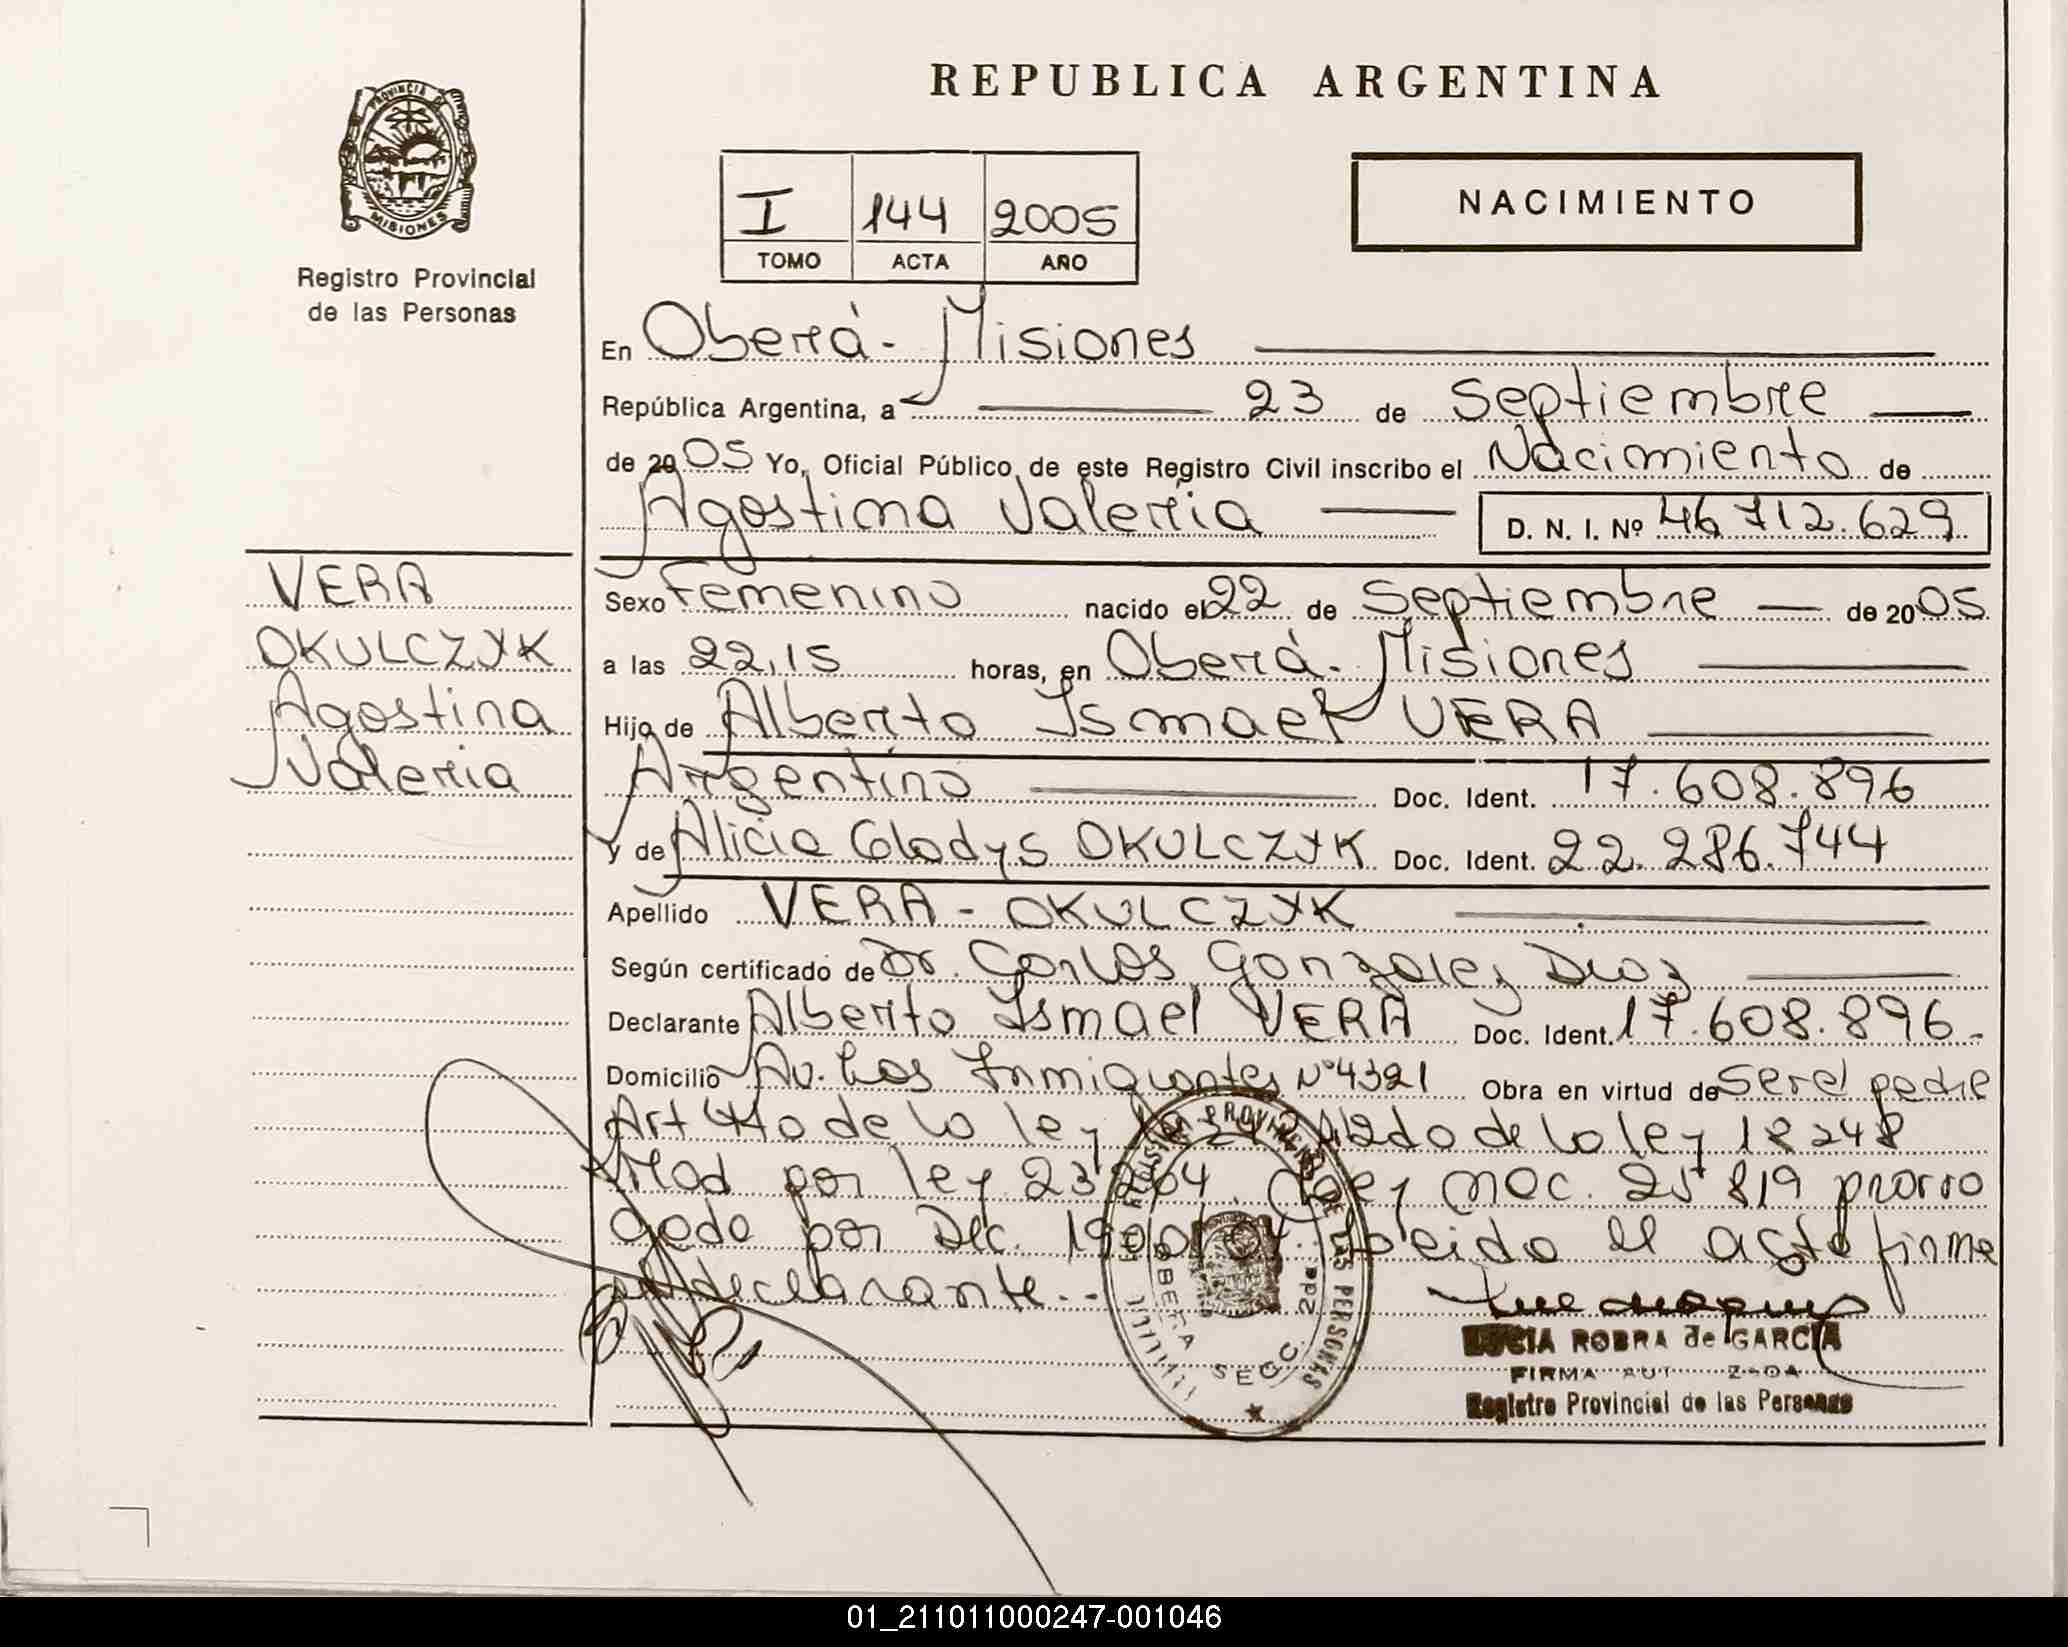 PROVINCIA DE
MISIONES
Registro Provincial
de las Personas
REPUBLICA ARGENTINA
I 144 2005
TOMO ACTA AÑO
NACIMIENTO
En Oberá - Misiones
República Argentina, a 23 de Septiembre
de 2005 Yo, Oficial Público de este Registro Civil inscribo el Nacimiento de
Agostina Valeria D. N. I. Nº 46 712.629
VERA
OKULCZYK
Agostina
Valeria
Sexo Femenino nacido el 22 de Septiembre de 2005
a las 22,15 horas, en Oberá - Misiones
Hijo de Alberto Ismael VERA
Argentino Doc. Ident. 17.608.896
y de Alicia Gladys OKULCZYK Doc. Ident. 22.286.744
Apellido VERA - OKULCZYK
Según certificado de Dr. Carlos Gonzalez Diaz
Declarante Alberto Ismael VERA Doc. Ident. 17.608.896.
Domicilio Av. Los Inmigrantes Nº 4321 Obra en virtud de ser el padre
Art 4to de la ley de la ley 18248
Mod por ley 23264. Ley nac. 25819 prorro
gada por Dec. Leido el acta firma
el declarante..
REGISTRO PROVINCIAL DE LAS PERSONAS
OBERA SECC. 2da
LUCIA ROBRA de GARCIA
FIRMA
Registro Provincial de las Personas
01_211011000247-001046